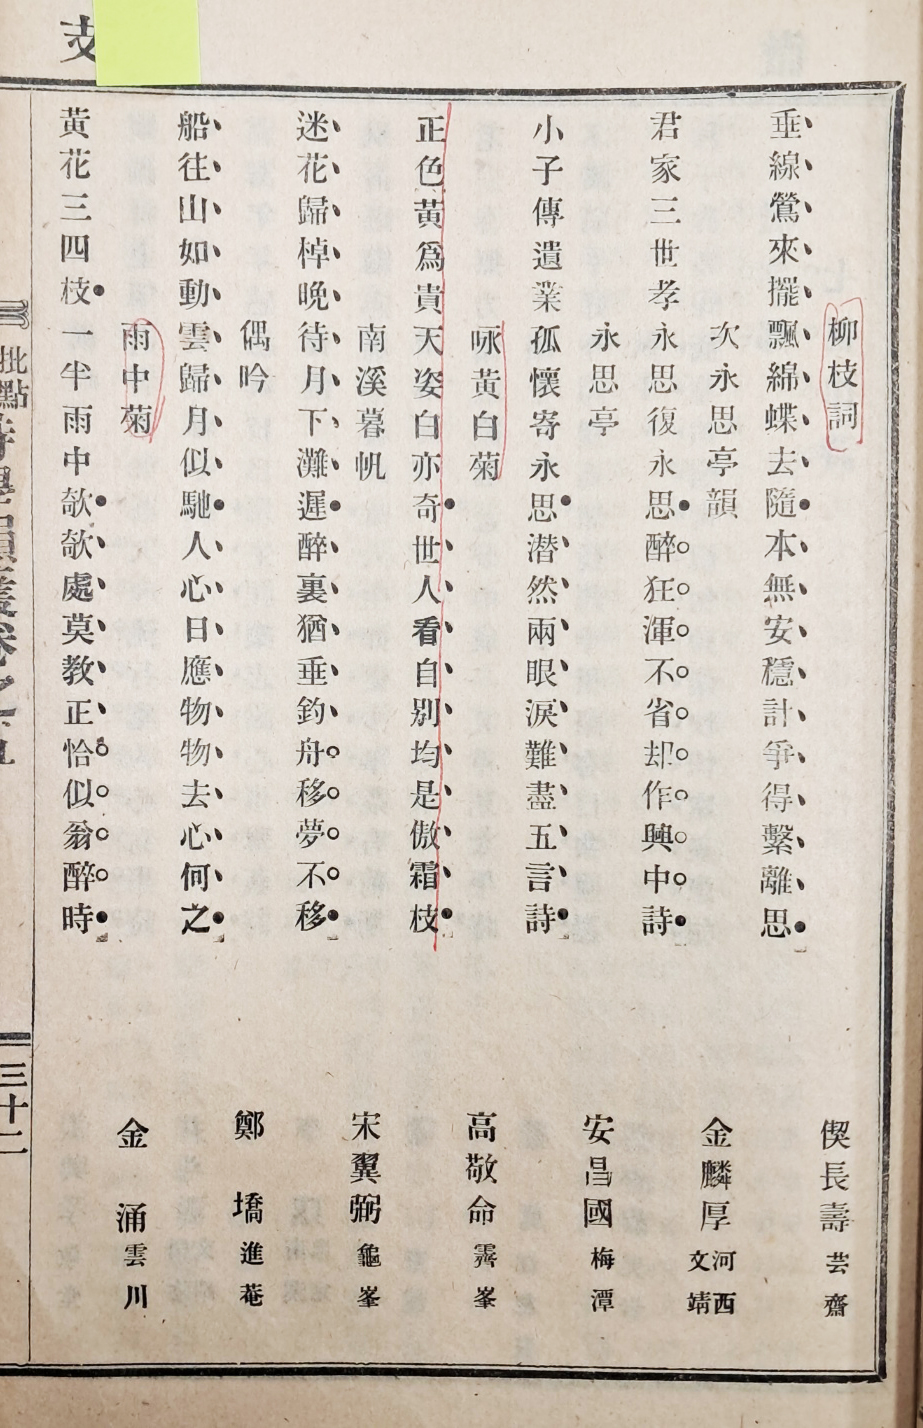 柳枝詞
偰長壽 芸齋
垂線鶯來擺飄綿蝶去隨本無安穩計爭得繫離思
次永思亭韻
金麟厚 河西 文靖
君家三世孝永思復永思醉狂渾不省却作興中詩
永思亭
安昌國 梅潭
小子傳遺業孤懷寄永思潛然兩眼淚難盡五言詩
咏黃白菊
高敬命 霽峯
正色黃爲貴天姿白亦奇世人看自別均是傲霜枝
南溪暮帆
宋翼弼 龜峯
迷花歸棹晚待月下灘遲醉裏猶垂釣舟移夢不移
偶吟
鄭 墧 進菴
船往山如動雲歸月似馳人心日應物物去心何之
雨中菊
金 涌 雲川
黃花三四枝一半雨中欹欹處莫教正恰似翁醉時
支
批點
三十二